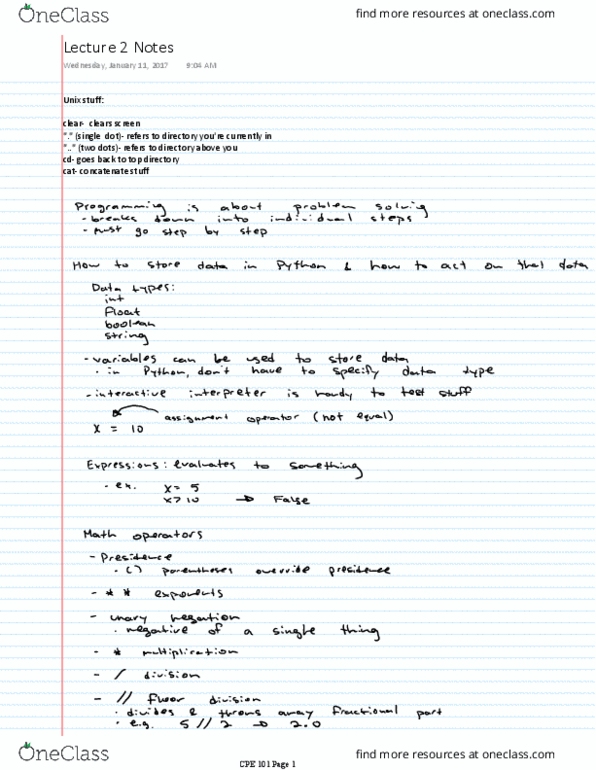 OneClass
find more resources at oneclass.com
Lecture 2 Notes
Wednesday, January 11, 2017 9:04 AM
Unix stuff:
clear- clears screen
"." (single dot)- refers to directory you're currently in
".." (two dots)- refers to directory above you
cd- goes back to top directory
cat- concatenate stuff
Programming is about problem solving
- breaks down into individual steps
- must go step by step
How to store data in Python & how to act on that data
Data types:
int
float
boolean
string
- variables can be used to store data
• in Python, don't have to specify data type
- interactive interpreter is handy to test stuff
assignment operator (not equal)
X = 10
Expressions: evaluates to something
- ex. X = 5
X > 10 → False
Math operators
- Presidence
• () parentheses override presidence
- ** exponents
- unary negation
• negative of a single thing
- * multiplication
- / division
- // floor division
• divides & throws away fractional part
• e.g. 5 // 2 → 2.0
OneClass
find more resources at oneclass.com
CPE 101 Page 1